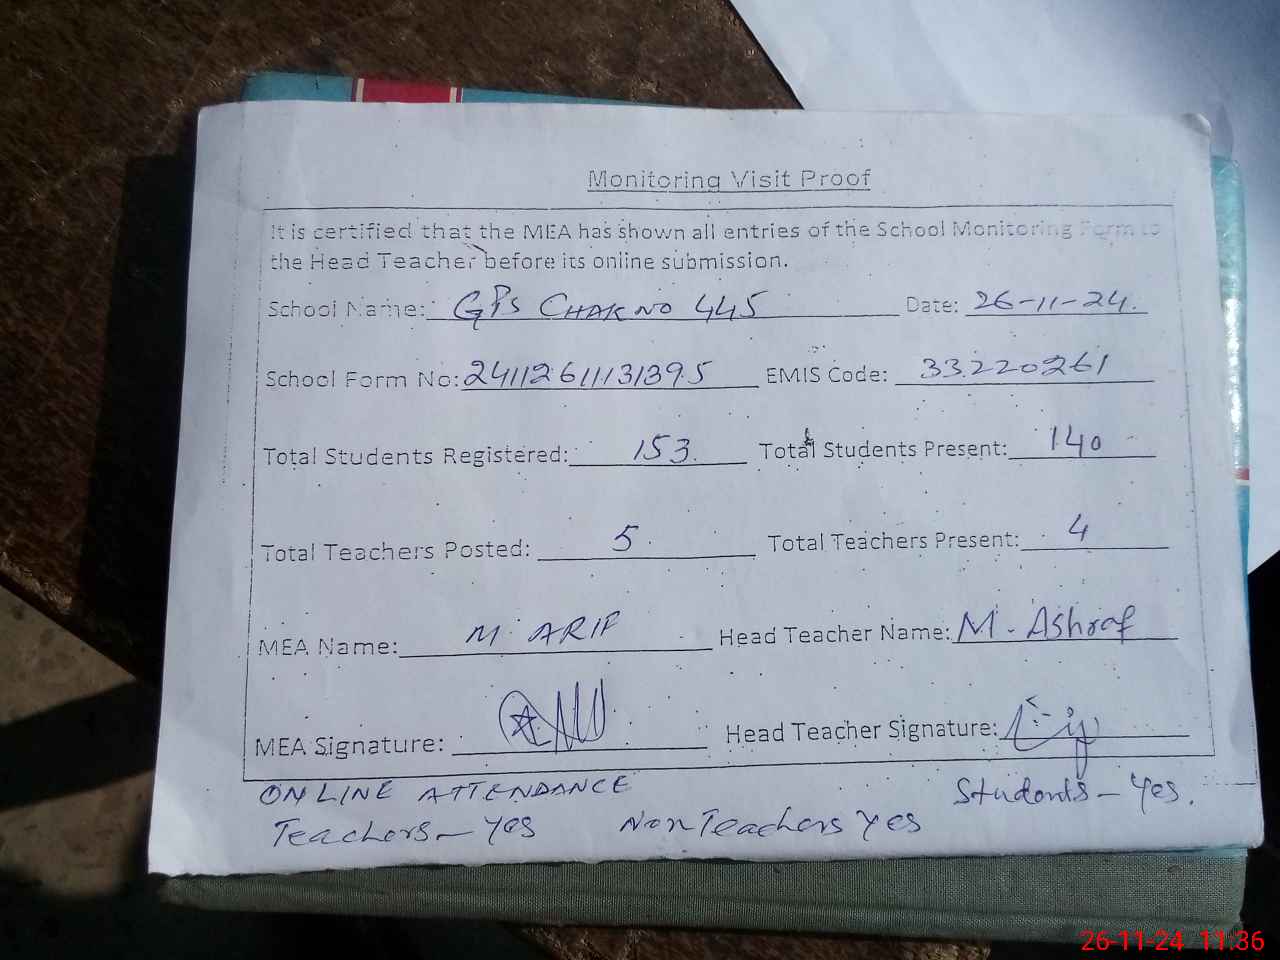 Monitoring Visit Proof
It is certified that the MEA has shown all entries of the School Monitoring Form to
the Head Teacher before its online submission.
School Name: GPS CHAK NO 445 Date: 26-11-24.
School Form No: 24112611131395 EMIS Code: 33220261
Total Students Registered: 153. Total Students Present: 140
Total Teachers Posted: 5. Total Teachers Present: 4
MEA Name: M. ARIF Head Teacher Name: M. Ashraf
MEA Signature: Head Teacher Signature:
ONLINE ATTENDANCE Students - Yes.
Teachers - Yes Non Teachers Yes
26-11-24 11:36